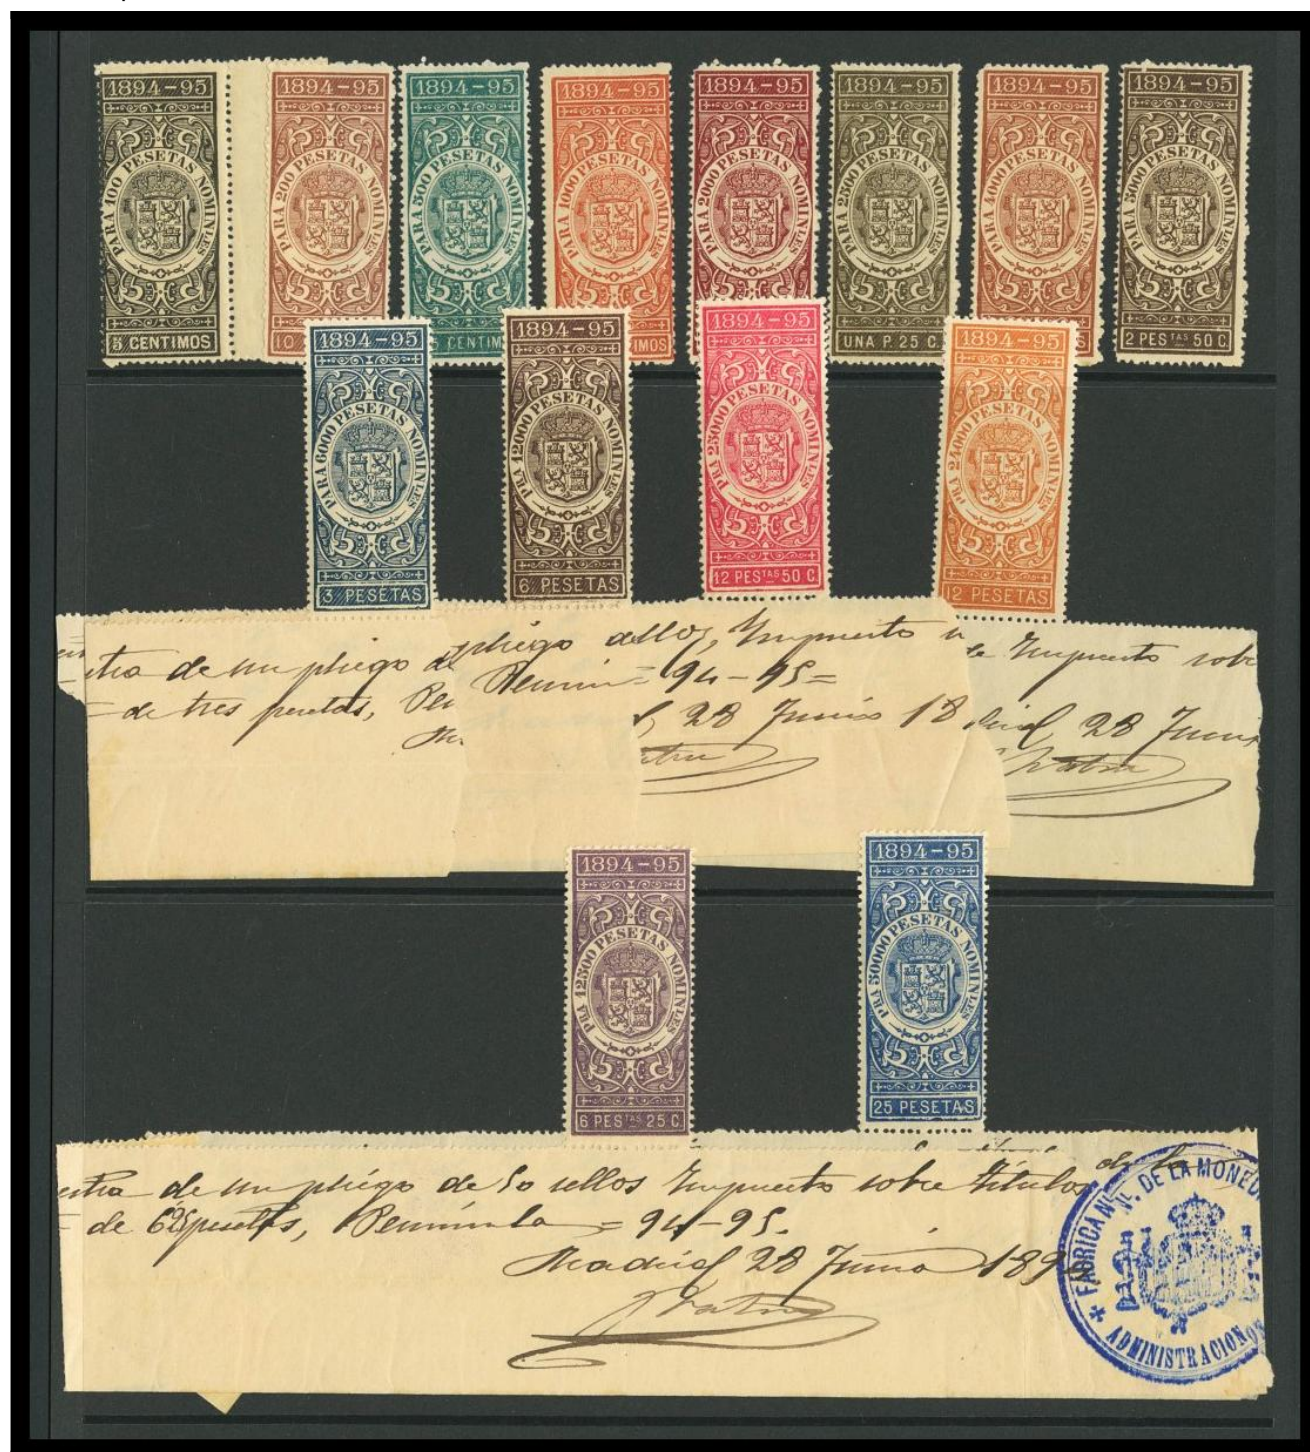 1894-95
PARA 100 PESETAS NOMINLES
5 CENTIMOS
1894-95
PARA 200 PESETAS NOMINLES
10
1894-95
PARA 500 PESETAS NOMINLES
CENTIM
1894-95
PARA 1000 PESETAS NOMINLES
IMOS
1894-95
PARA 2000 PESETAS NOMINLES
1894-95
PARA 2500 PESETAS NOMINLES
UNA P. 25 C.
1894-95
PARA 4000 PESETAS NOMINLES
S
1894-95
PARA 5000 PESETAS NOMINLES
2 PES TAS 50 C.
1894-95
PARA 6000 PESETAS NOMINLES
3 PESETAS
1894-95
PRA 12000 PESETAS NOMINLES
6 PESETAS
1894-95
PRA 25000 PESETAS NOMINLES
12 PES TAS 50 C
1894-95
PRA 24000 PESETAS NOMINLES
12 PESETAS
stra de un pliego de
= de tres pesetas, Pen
pliego sellos, Impuesto
94-95=
28 Junio 18
Impuesto sobre
28 Junio
1894-95
PRA 12500 PESETAS NOMINLES
6 PES TAS 25 C.
1894-95
PRA 50000 PESETAS NOMINLES
25 PESETAS
estra de un pliego de 50 sellos Impuesto sobre titulos
= de 6'25 pesetas, Peninsula = 94-95.
Madrid 28 Junio 189
FABRICA NAL. DE LA MONED
ADMINISTRACION